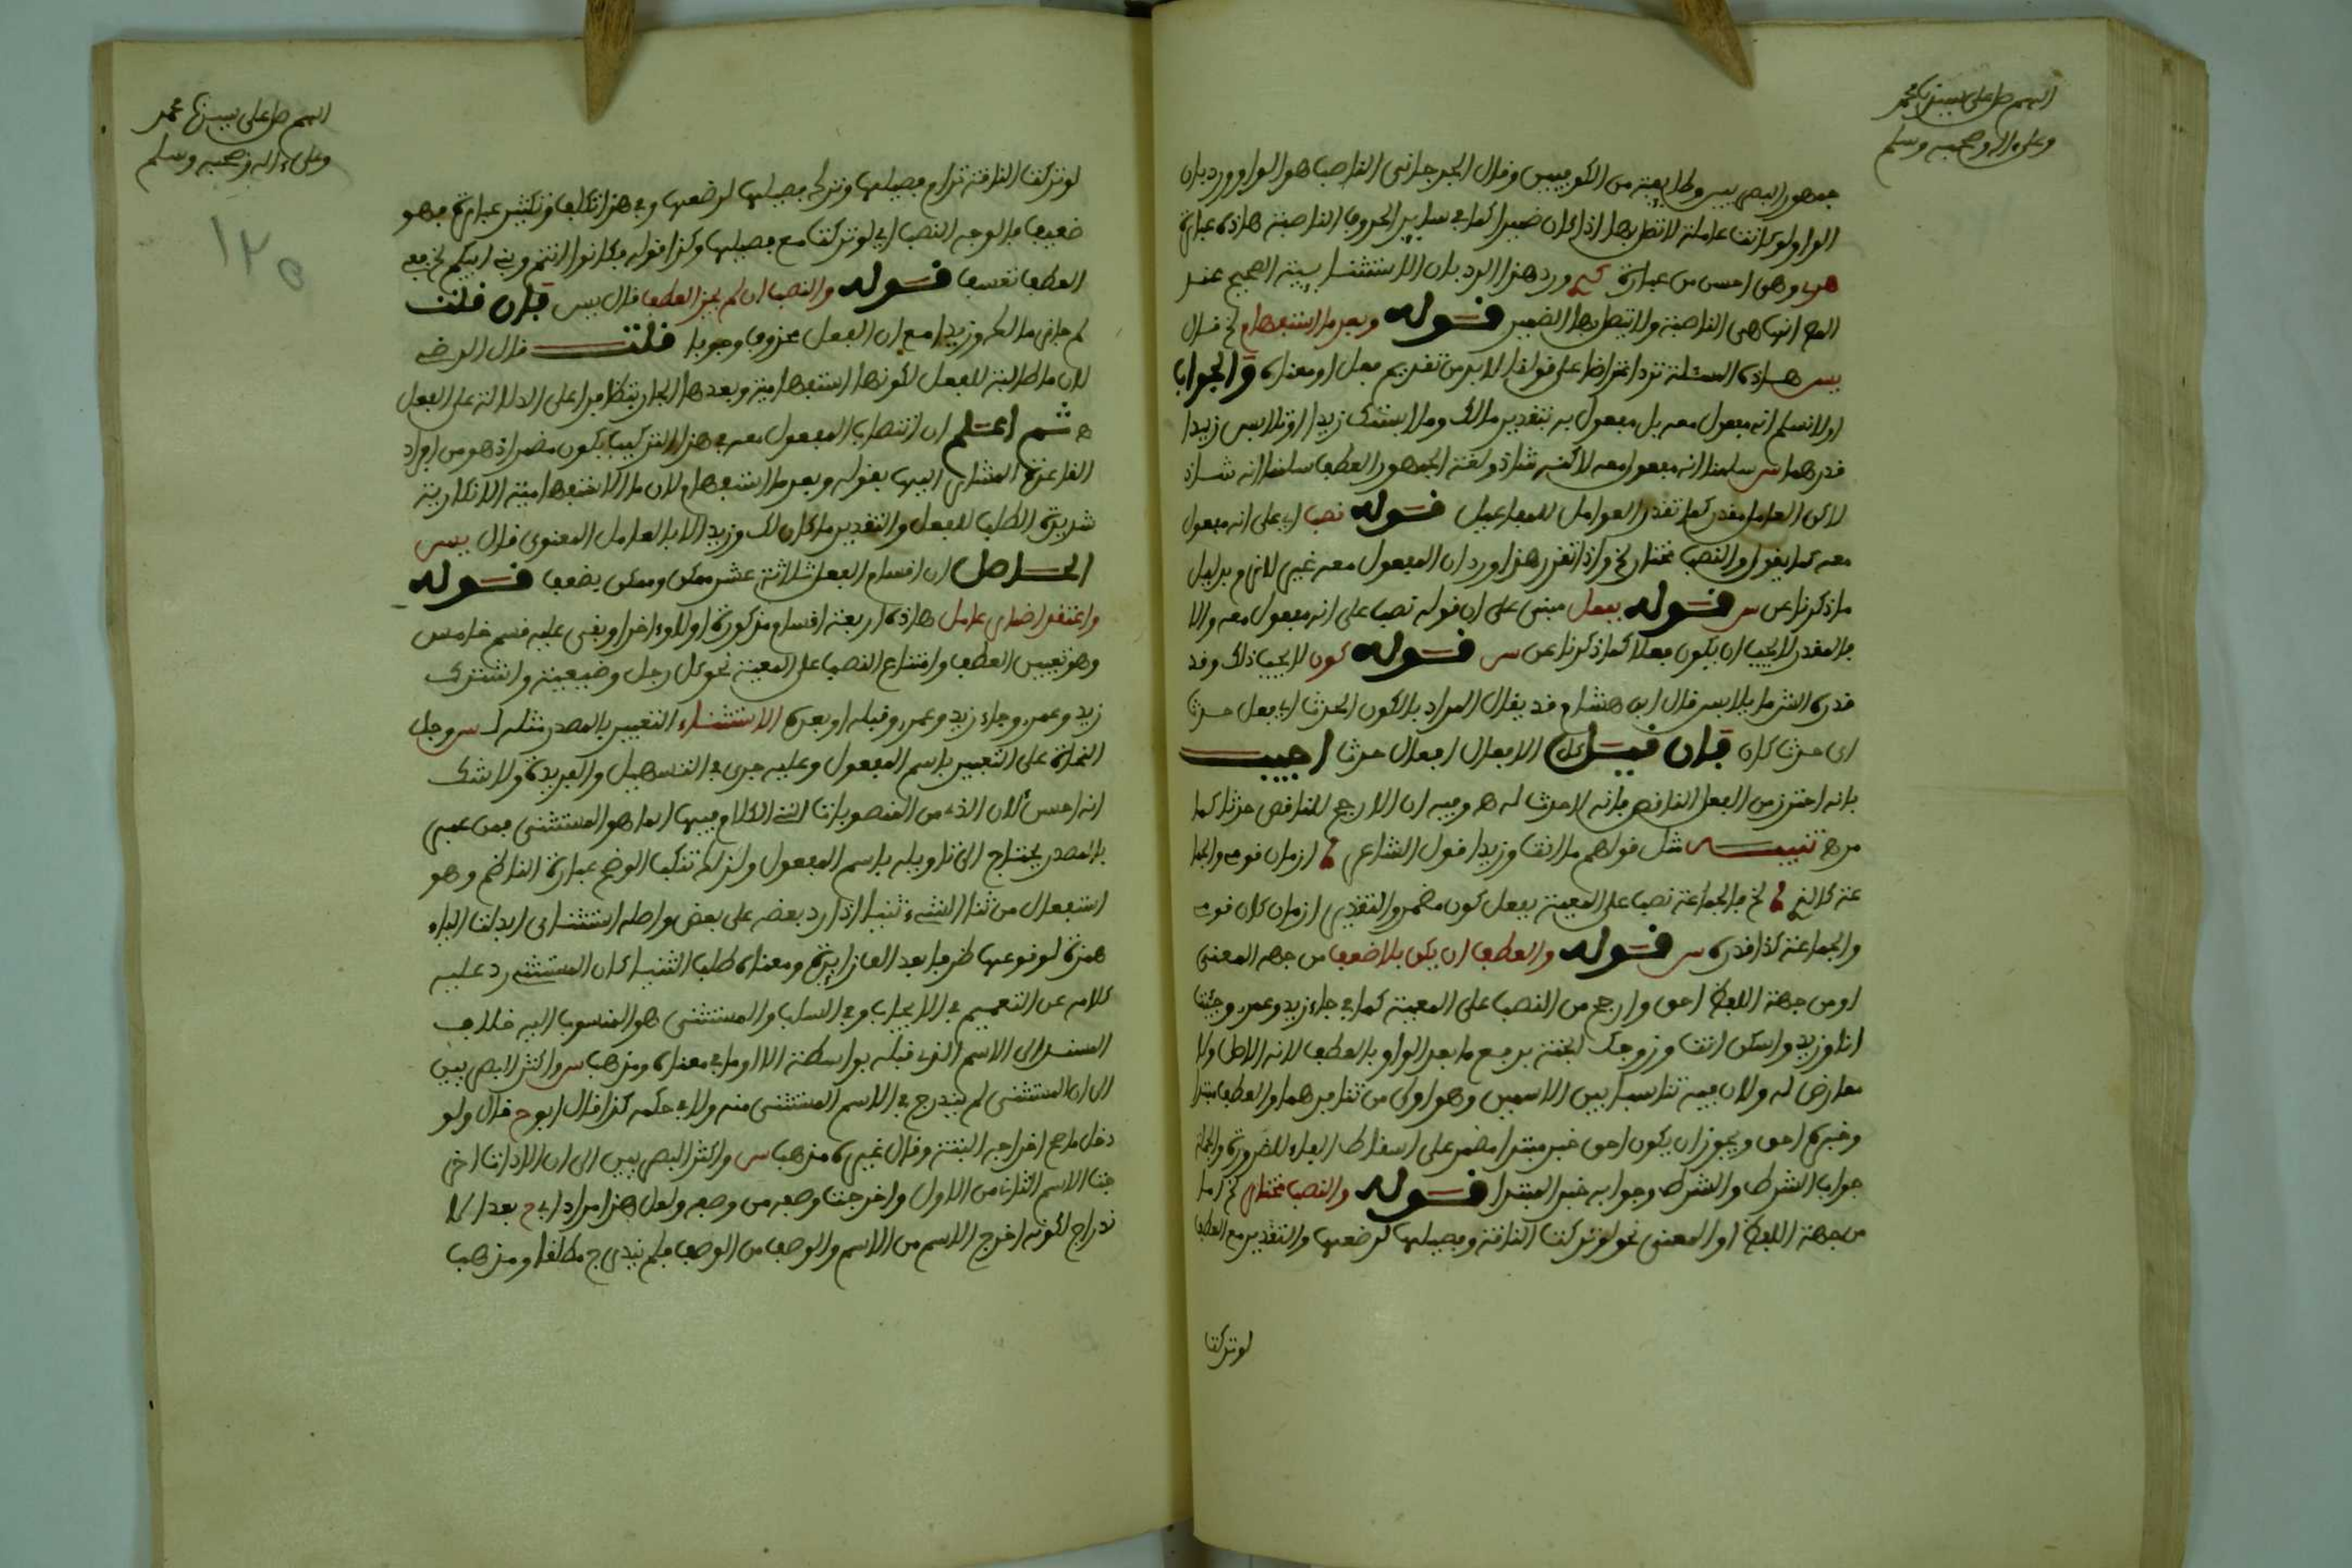 اللهم صل على سيدنا محمد
وعلى ءاله وصحبه وسلم
جمهور البصريين وطايفة من الكوفيين وقال الجرجاني الناصب هو الواو ورد بان
الواو لو كانت عاملة لاتصل بها اذا كان ضميرا كما في ساير الحروف الناصبة هاذه عبارة
وهي احسن من عبارة ورد هذا الرد بان الاستثنايية الصحيح عند
المص انها هي الناصبة ولا يتصل بها الضمير قوله وبعد ما استفهام الخ قال
يس هاذه المسئلة ترد اعتراضا على قولنا لا بد من تقديم فعل او معناه والجواب
اولا نسلم انه مفعول معه بل مفعول به بتقدير مالك وملابستك زيدا او تلابس زيدا
قدرهما س سلمنا انه مفعول معه لاكنه شاذ ولغة الجمهور العطف سلمنا انه شاذ
لاكن العامل مقدر كما تقدر العوامل للمفاعيل قوله نصب اي على انه مفعول
معه كما يقول والنصب مختار الخ واذا تقرر هذا ورد ان المفعول معه غير لازم بدليل
ما ذكرنا عن س قوله بفعل مبنى على ان قوله نصب على انه مفعول معه والا
فالمقدر لا يجب ان يكون فعلا كما ذكرنا عن س قوله كون لا يجب ذلك وقد
قدره الشرما يلابس قال ابن هشام قد يقال المراد بالكون الحدث اي بفعل حدث
اي حدث كان فان قيل كل الافعال افعال حدث اجيب
بانه احترز من الفعل الناقص فانه لا حدث له ه وفيه ان الارجح للناقص حدثا كما
مر ه تنبيه مثل قولهم ما انت وزيدا قول الشاعر ازمان قومي والجما
عة كالذي الخ فالجماعة نصب على المعية بفعل كون مضمر والتقدير ازمان كان قومي
والجماعة كذا قدره س قوله والعطف ان يكن بلا ضعف من جهه المعنى
او من جهة اللفظ احق وارجح من النصب على المعية كما في جاء زيد وعمرو وجئت
انا وزيد واسكن انت وزوجك الجنة برفع ما بعد الواو بالعطف لانه الاصل ولا
معارض له ولان فيه تناسبا بين الاسمين وهو اولى من تنافرهما والعطف مبتدا
وخبره احق ويجوز ان يكون احق خبر مبتدا مضمر على اسقاط الفاء للضرورة والجملة
جواب الشرط والشرط وجوابه خبر المبتدا قوله والنصب مختار الخ اما
من جهة اللفظ او المعنى نحو لو تركت الناقة وفصيلها لرضعها والتقدير مع العطف
لو تركت
اللهم صل على سيدنا محمد
وعلى ءاله وصحبه وسلم
١٢٥
لو تركت الناقة ترام فصيلها وترك فصيلها لرضعها وفي هذا تكلف وتكثير عبارة فهو
ضعيف فالوجه النصب اي لو تركت مع فصيلها وكذا قوله فكونوا انتم وبني ابيكم الخ ففي
العطف تعسف قوله والنصب ان لم يجز العطف قال يس فان قلت
لم جاز مالك وزيدا مع ان الفعل محذوف وجوبا قلت قال الرضي
لان ما طالبة للفعل لكونها استفهامية وبعدها الجار يتظافرا على الدلالة على الفعل
ه ثم اعلم ان انتصاب المفعول معه في هذا التركيب بكون مضمر اذ هو من افراد
القاعدة المشار اليها بقوله وبعد ما استفهام لان ما الاستفهامية الانكارية
شديدة الطلب للفعل والتقدير ما كان لك وزيدا لا بالعامل المعنوي قال يس
الحاصل ان اقسام الفعل ثلاثة عشر ممكن وممكن بضعف قوله
واعتقد اضمار عامل هاذه اربعة اقسام مذكورة اولا واخرا وبقي عليه قسم خامس
وهو تعيين العطف وامتناع النصب على المعية نحو كل رجل وضيعته واشترك
زيد وعمرو وجاء زيد وعمرو قبله او بعده الاستثناء التعبير بالمصدر مثله لـ س وجل
النحاة على التعبير باسم المفعول وعليه جرى في التسهيل والفريدة ولا شك
انه احسن لان الذي من المنصوبات التي الكلام فيها انما هو المستثنى فمن عبر
بالمصدر يحتاج الى تاويله باسم المفعول ولذلك تنكب الوضح عبارة الناظم وهو
استفعال من ثنا الشيء ثنيا اذا رد بعضه على بعض واصله استثناي ابدلت الياء
همزة لوقوعها طرفا بعد الف زايدة ومعناه طلب الثنيا كان المستثني رد عليه
كلامه عن التعميم في الايجاب وفي السلب والمستثنى هو المنسوب اليه خلاف
المسند الى الاسم الذي قبله بواسطة الا او ما في معناه ومذهب س واكثر البصريين
الى ان المستثنى لم يندرج في الاسم المستثنى منه ولا في حكمه كذا قال ابو ح قال ولو
دخل ما صح اخراجه البتة وقال غيره مذهب س واكثر البصريين الى ان الاداة اخر
جت الاسم الثاني من الاول واخرجت وصفه من وصفه ولعل هذا مراد ابي ح بعد الا
ندراج لكونه اخرج الاسم من الاسم والوصف من الوصف فلم يندرج مطلقا ومذهب